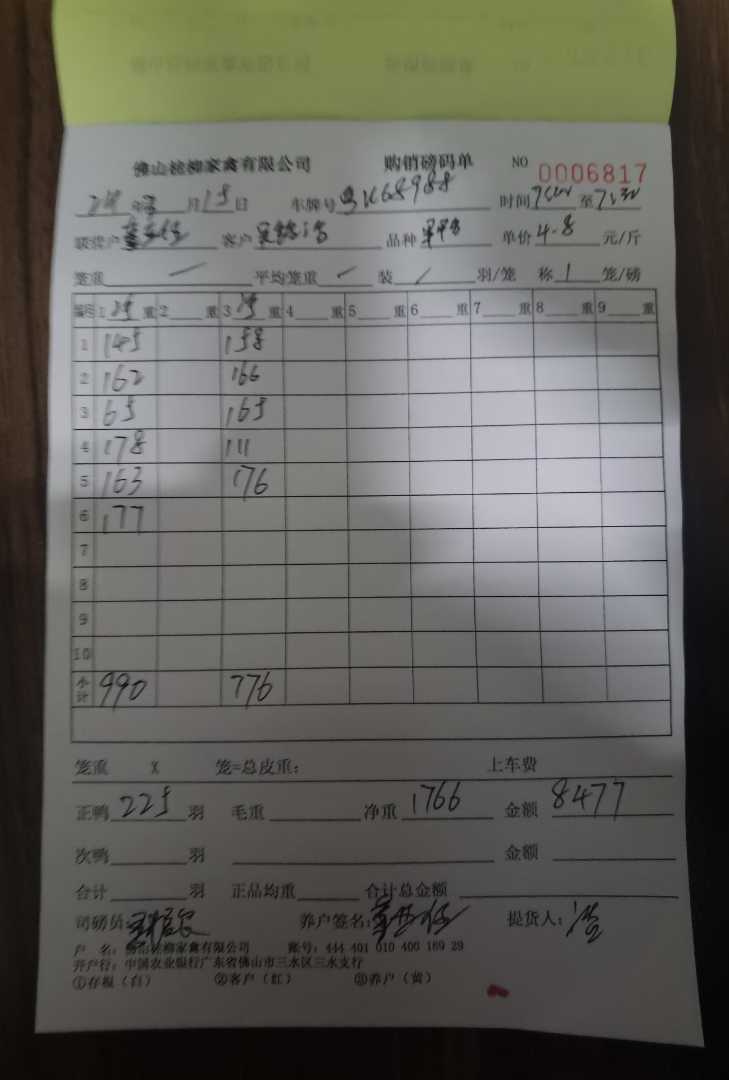 佛山 柳家禽有限公司 购销磅码单 NO 0006817
年 月15日 车牌号 K68988 时间 至
客户 品种 单价 4.8 元/斤
笼重 一 平均笼重 一 装 / 羽/笼 称 1 笼/磅
编号 1 25 重 2 重 3 25 重 4 重 5 重 6 重 7 重 8 重 9 重
1 145 158
2 162 166
3 65 165
4 178 111
5 163 176
6 177
7
8
9
10
小计 990 776
笼重 X 笼=总皮重: 上车费
正鸭 225 羽 毛重 净重 1766 金额 8477
次鸭 羽 金额
合计 羽 正品均重 合计总金额
司磅员: 养户签名: 提货人:
户 名: 佛山 柳家禽有限公司 账号: 444 401 010 400 169 29
开户行: 中国农业银行广东省佛山市三水区三水支行
①存根（白） ②客户（红） ③养户（黄）